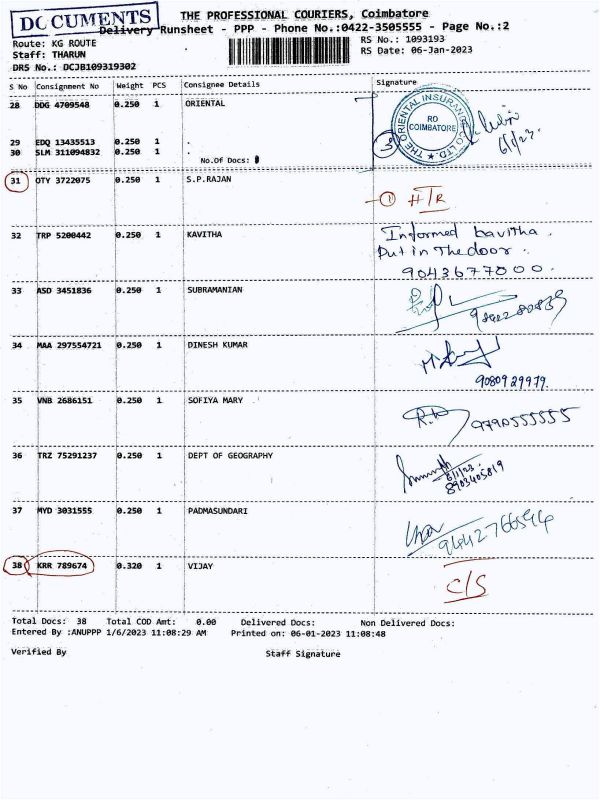 DOCUMENTS
THE PROFESSIONAL COURIERS, Coimbatore
Delivery Runsheet - PPP - Phone No.:0422-3505555 - Page No.:2
Route: KG ROUTE
RS No.: 1093193
Staff: THARUN
RS Date: 06-Jan-2023
DRS No.: DCJB109319302
S No Consignment No Weight PCS Consignee Details Signature
28 DDG 4709548 0.250 1 ORIENTAL
THE ORIENTAL INSURANCE CO LTD.
RO
COIMBATORE
3
6/1/23.
29 EDQ 13435513 0.250 1 .
30 SLM 311094832 0.250 1 .
No.Of Docs:
31 OTY 3722075 0.250 1 S.P.RAJAN
1 HTR
32 TRP 5200442 0.250 1 KAVITHA
Informed kavitha.
Put in The door.
9043677000.
33 ASD 3451836 0.250 1 SUBRAMANIAN
34 MAA 297554721 0.250 1 DINESH KUMAR
9080929979.
35 VNB 2686151 0.250 1 SOFIYA MARY .
9790555555
36 TRZ 75291237 0.250 1 DEPT OF GEOGRAPHY
6/1/23
8903405819
37 MYD 3031555 0.250 1 PADMASUNDARI
9442766594
38 KRR 789674 0.320 1 VIJAY
C/S
Total Docs: 38 Total COD Amt: 0.00 Delivered Docs: Non Delivered Docs:
Entered By :ANUPPP 1/6/2023 11:08:29 AM Printed on: 06-01-2023 11:08:48
Verified By Staff Signature